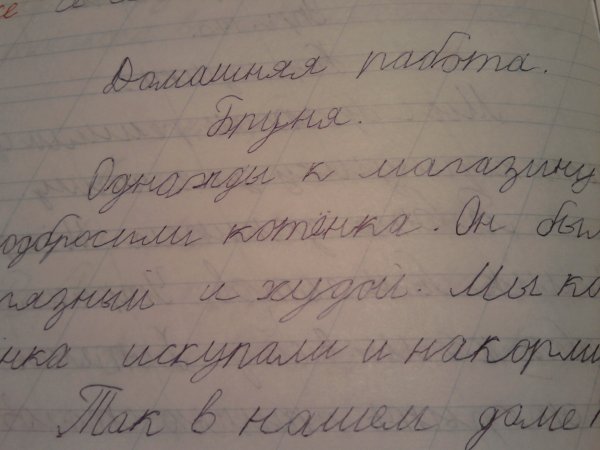 Домашняя работа.
Бруня.
Однажды к магазину
одбросили котёнка. Он был
язный и худой. Мы ко
нка искупали и накорми
Так в нашем доме